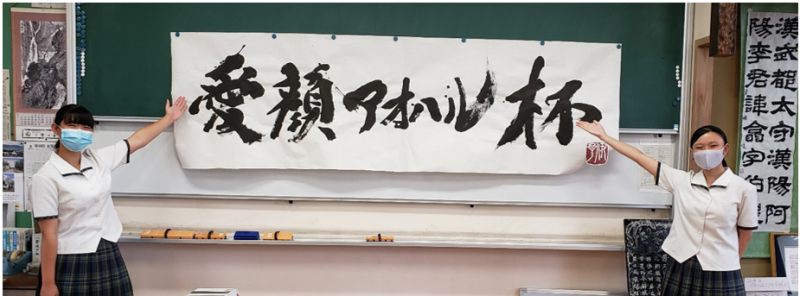 愛顔アオハル杯
漢武都太守漢陽阿
陽李君諱翕字伯